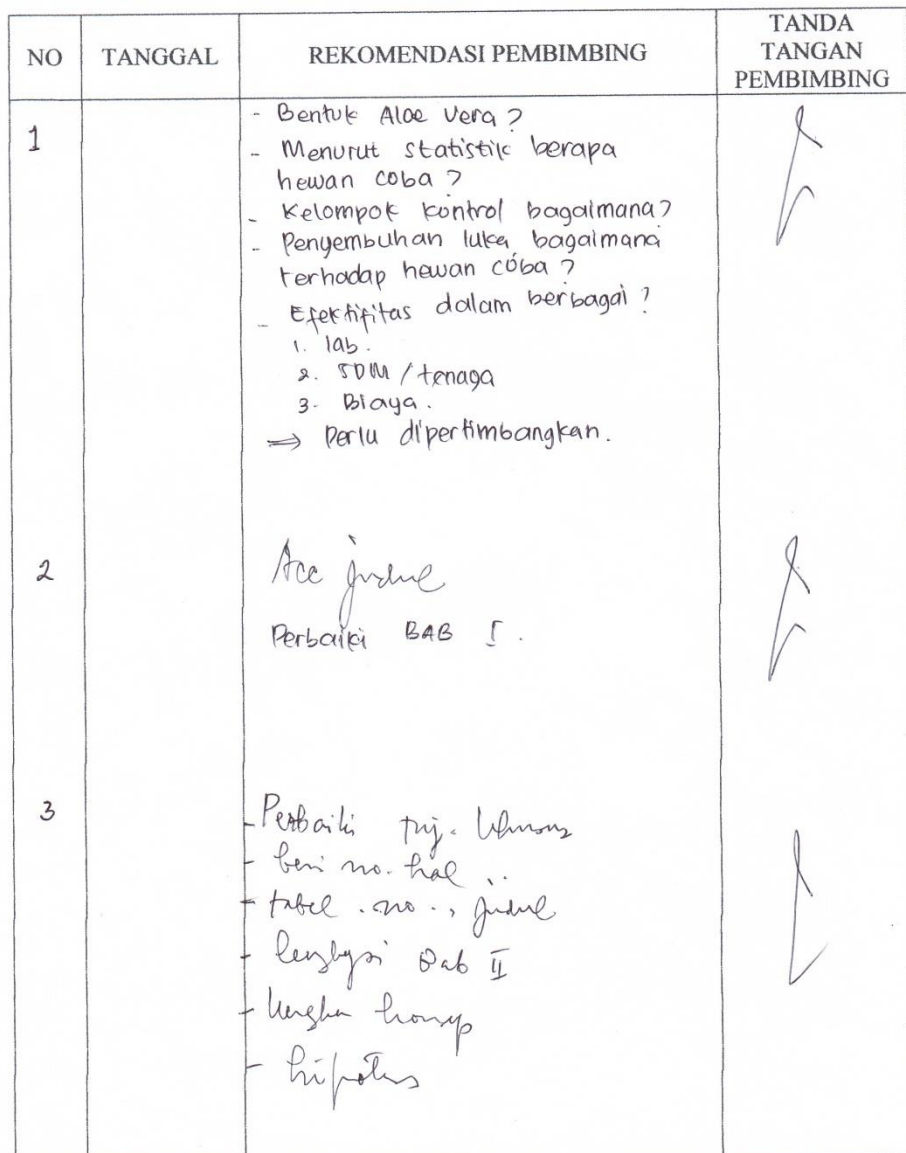 NO TANGGAL REKOMENDASI PEMBIMBING TANDA TANGAN PEMBIMBING
1
- Bentuk Aloe Vera ?
- Menurut statistik berapa
hewan coba ?
- Kelompok kontrol bagaimana?
- Penyembuhan luka bagaimana
terhadap hewan coba ?
- Efektifitas dalam berbagai ?
1. lab.
2. SDM / tenaga
3. Biaya.
⇒ Perlu dipertimbangkan.
2
Acc judul
Perbaiki BAB I.
3
- Perbaiki tuj. khusus
- beri no. hal
- tabel. no., judul
- lengkapi Bab II
- kerangka konsep
- hipotesis